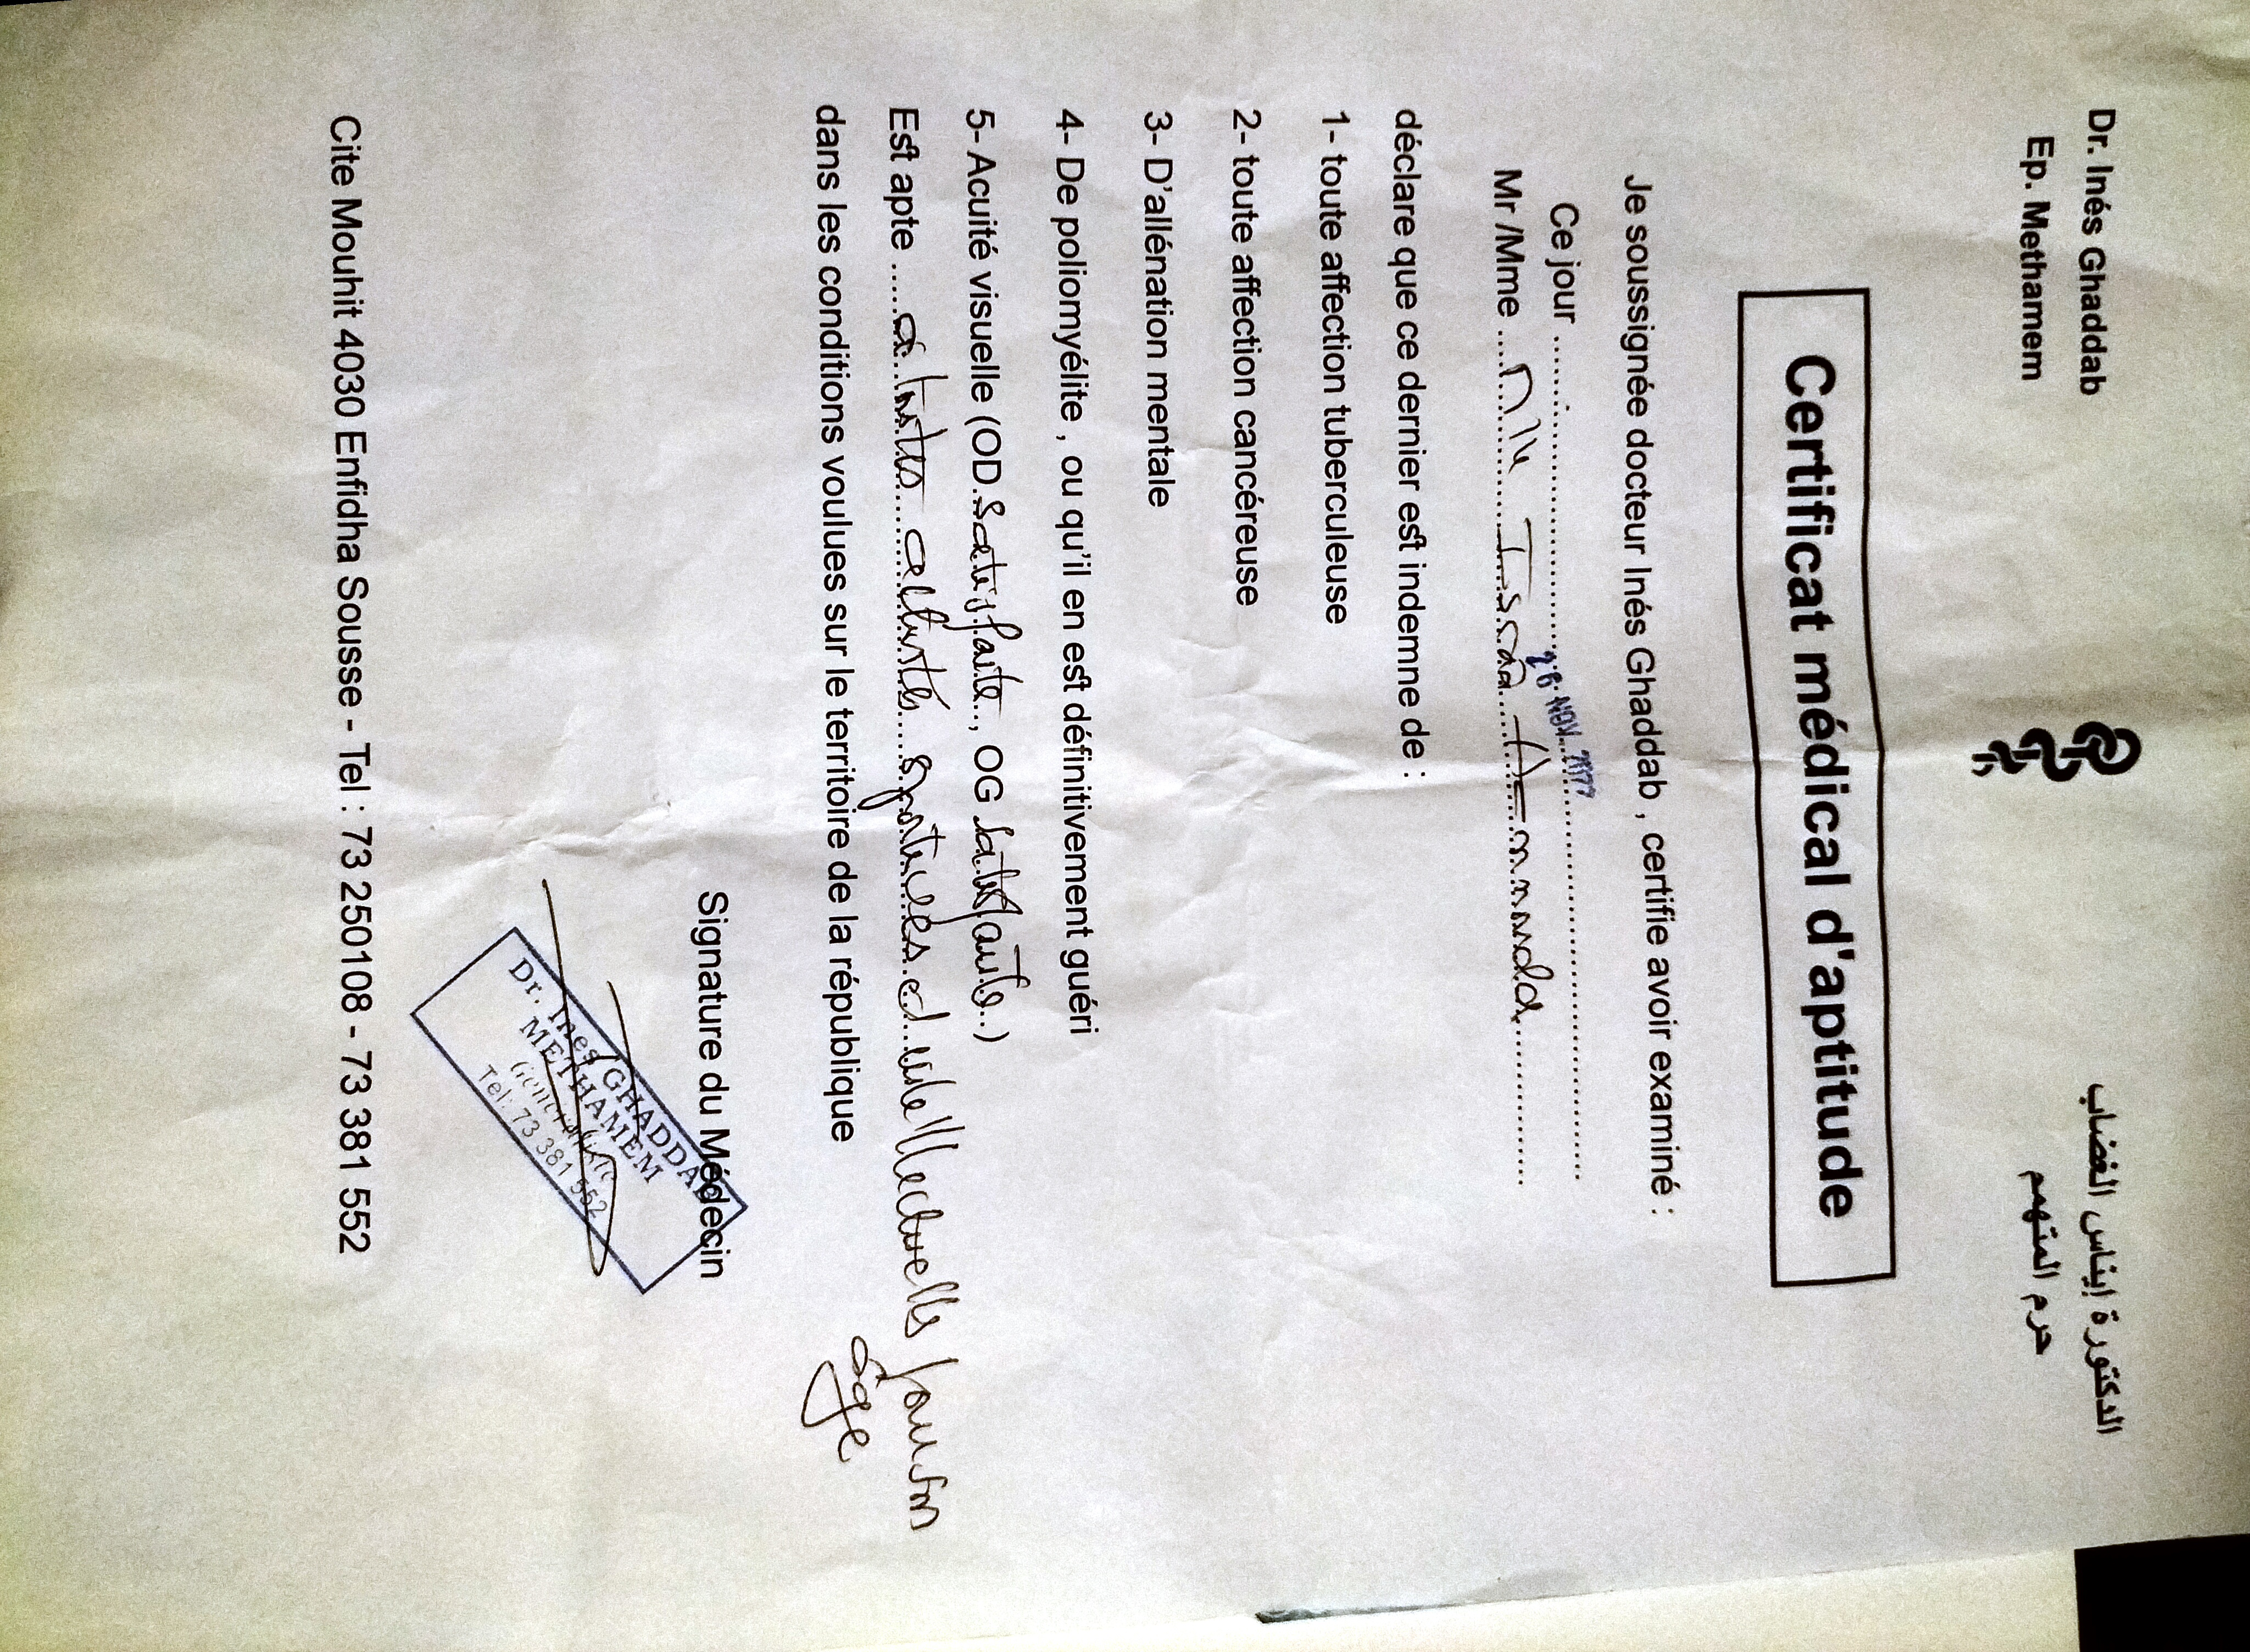 Dr. Inés Ghaddab
Ep. Methamem
الدكتورة إيناس الغضاب
حرم المتهمم
Certificat médical d'aptitude
Je soussignée docteur Inés Ghaddab , certifie avoir examiné :
Ce jour ........ 26 NOV. ........
Mr /Mme .... Mlle ........
déclare que ce dernier est indemne de :
1- toute affection tuberculeuse
2- toute affection cancéreuse
3- D'allénation mentale
4- De poliomyélite , ou qu'il en est définitivement guéri
5- Acuité visuelle (OD. Satisfaite .., OG satisfaite ..)
Est apte .... à toutes activités sportives et intellectuelles pour son
âge
dans les conditions voulues sur le territoire de la république
Signature du Médecin
Dr. Ines GHADDAB
METHAMEM
Généraliste
Tel: 73 381 552
Cite Mouhit 4030 Enfidha Sousse - Tel : 73 250108 - 73 381 552